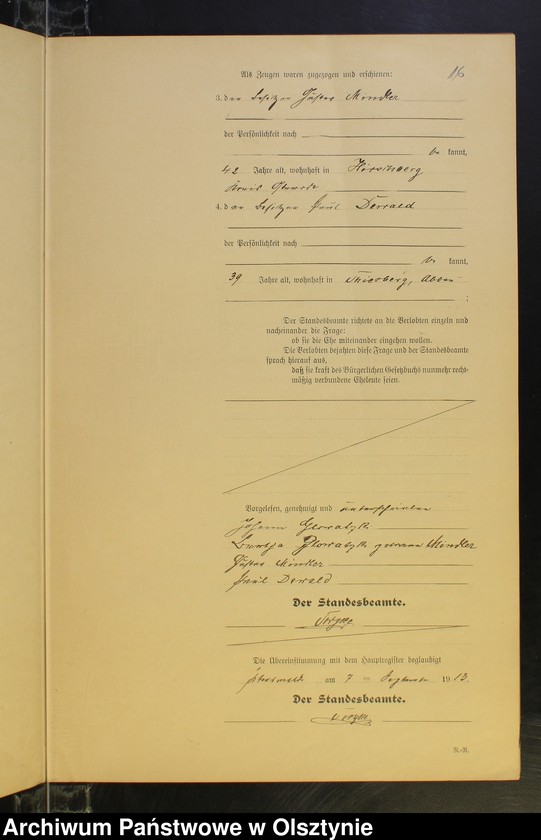 116
Als Zeugen waren zugezogen und erschienen:
3. der Besitzer Gustav Mondler
der Persönlichkeit nach
be kannt,
42 Jahre alt, wohnhaft in Hirschberg
Kreis Osterode
4. der Besitzer Paul Dewald
der Persönlichkeit nach
be kannt,
39 Jahre alt, wohnhaft in
;
Der Standesbeamte richtete an die Verlobten einzeln und
nacheinander die Frage:
ob sie die Ehe miteinander eingehen wollen.
Die Verlobten bejahten diese Frage und der Standesbeamte
sprach hierauf aus,
daß sie kraft des Bürgerlichen Gesetzbuchs nunmehr recht-
mäßig verbundene Eheleute seien.
Vorgelesen, genehmigt und unterschrieben
Johann Glowatzk
Glowatzk geborene Mondler
Gustav Mondler
Paul Dewald
Der Standesbeamte.
Die Übereinstimmung mit dem Hauptregister beglaubigt
am 7 ten September 1913.
Der Standesbeamte.
N.-R.
Archiwum Państwowe w Olsztynie